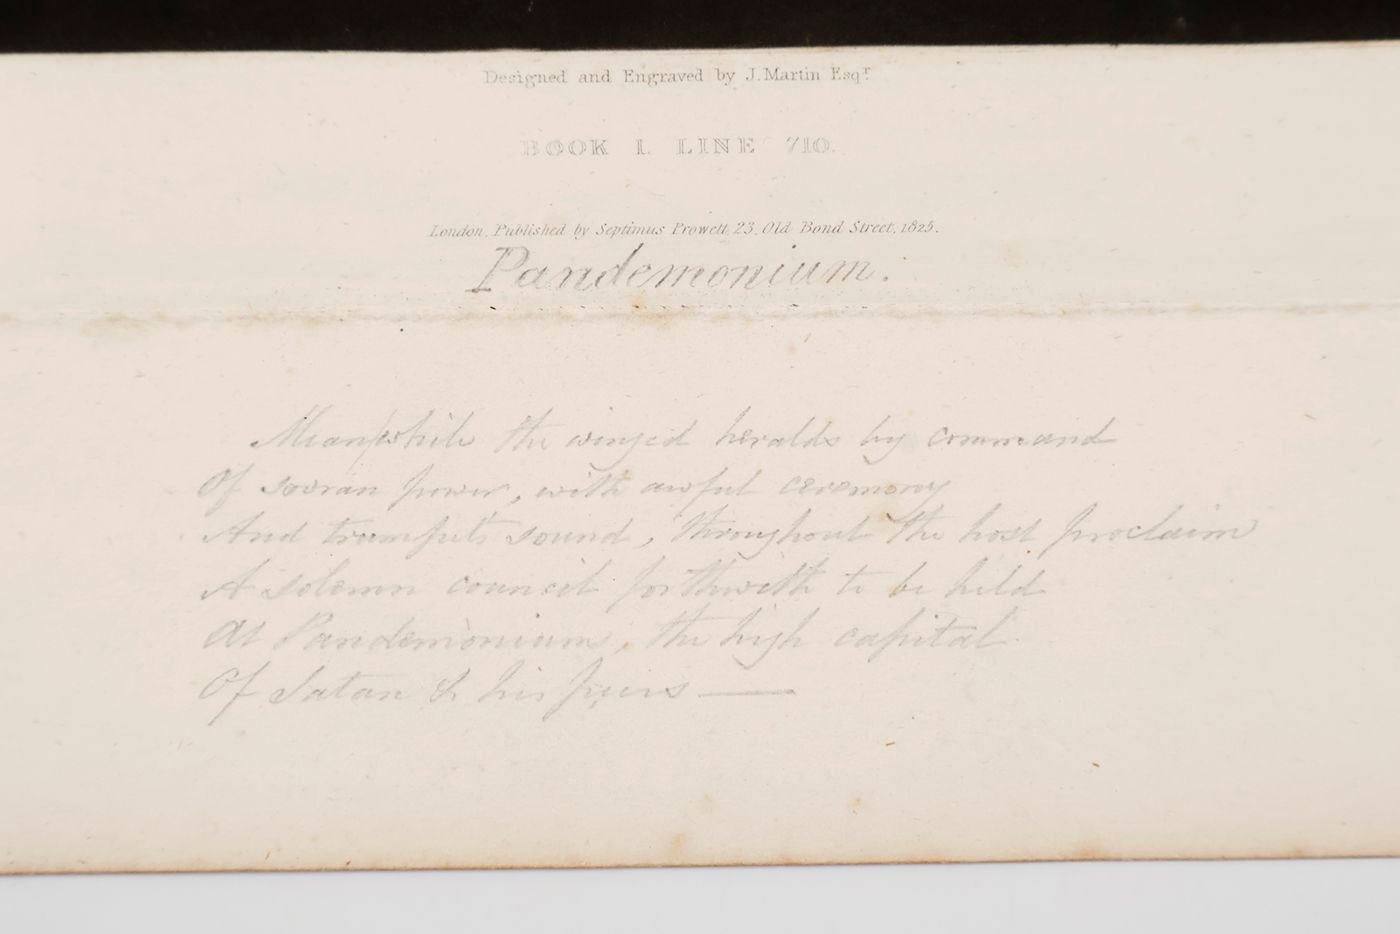 Designed and Engraved by J. Martin Esqr
BOOK 1. LINE 710.
London, Published by Septimus Prowett, 23, Old Bond Street, 1825.
Pandemonium.
Meanwhile the winged heralds by command
Of sovran power, with awful ceremony
And trumpets sound, throughout the host proclaim
A solemn council forthwith to be held
At Pandemonium, the high capital
Of Satan & his peers —